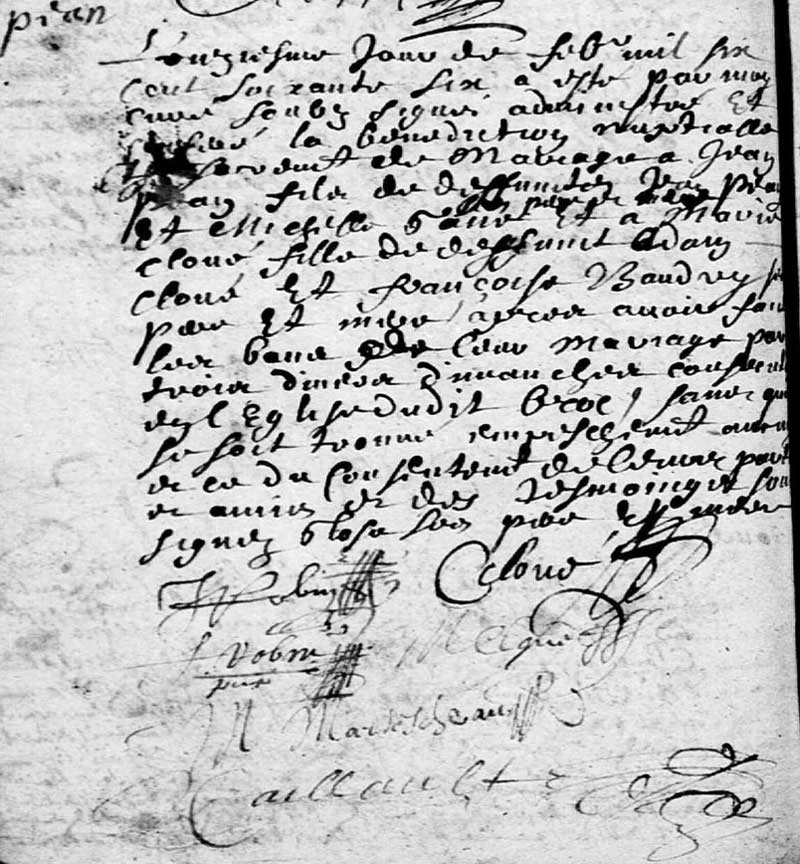 pean
L'onziesme Jour de febr mil six
cent soixante six a este par moy
curé soubz signé administré Et
la benediction nuptialle
sacrement de Mariage a Jean
pean fils de deffuncts Jean pean
Et Michelle Et a Marie
Cloué fille de deffunct Adam
Cloué Et francoise Baudry ses
pere Et mere apres avoir fait
les bans de leur Mariage par
trois divers dimanches consecutifs
en l Eglise dudit broc sans que
se soit trouvé empeschemt aucun
et ce du consentemt de leurs parens
et amis et des tesmoings soub
signez pere Et mere
Robin Cloue
J. Robin
Marseschau
Caillault